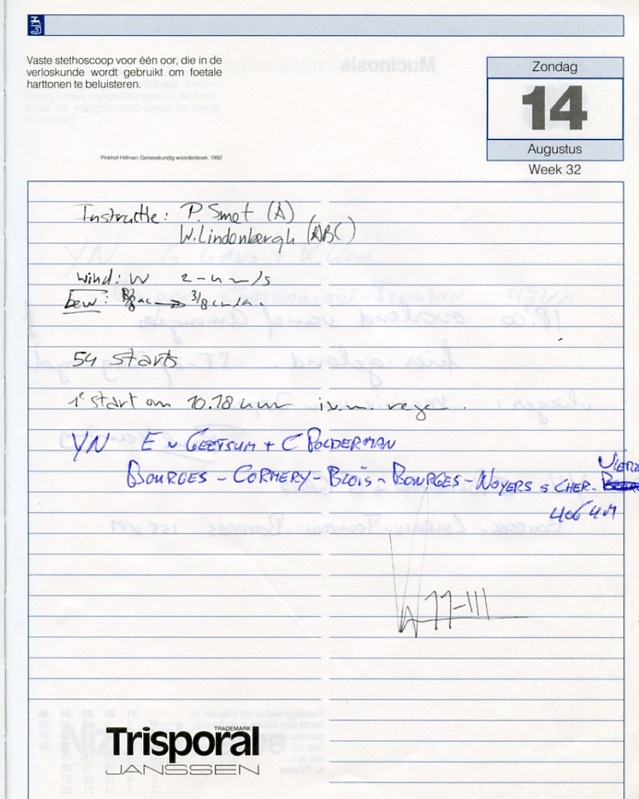 Vaste stethoscoop voor één oor, die in de
verloskunde wordt gebruikt om foetale
harttonen te beluisteren.
Pinkhof-Hilfman: Geneeskundig woordenboek, 1992
Zondag
14
Augustus
Week 32
Instructie: P. Smet (A)
W. Lindenbergh (ABC)
wind: W 2-4 m/s
bew: 3/8 cu/
54 starts
1e start om 10.18 uur i.v.m. regen.
YN E v GEETSUM + C POLDERMAN
BOURGES - CORMERY - BLOIS - BOURGES - NOYERS s CHER -
406 KM
TRADEMARK
Trisporal
JANSSEN